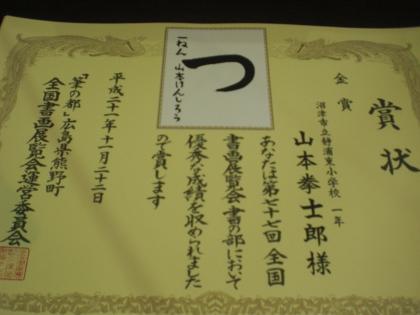 賞状
金賞
沼津市立静浦東小学校 一年
山本拳士郎様
あなたは第七十七回全国
書画展覧会書の部において
優秀な成績を収められました
ので賞します
つ
一ねん 山本けんしろう
平成二十一年十一月二十二日
「筆の都」広島県熊野町
全国書画展覧会運営委員会